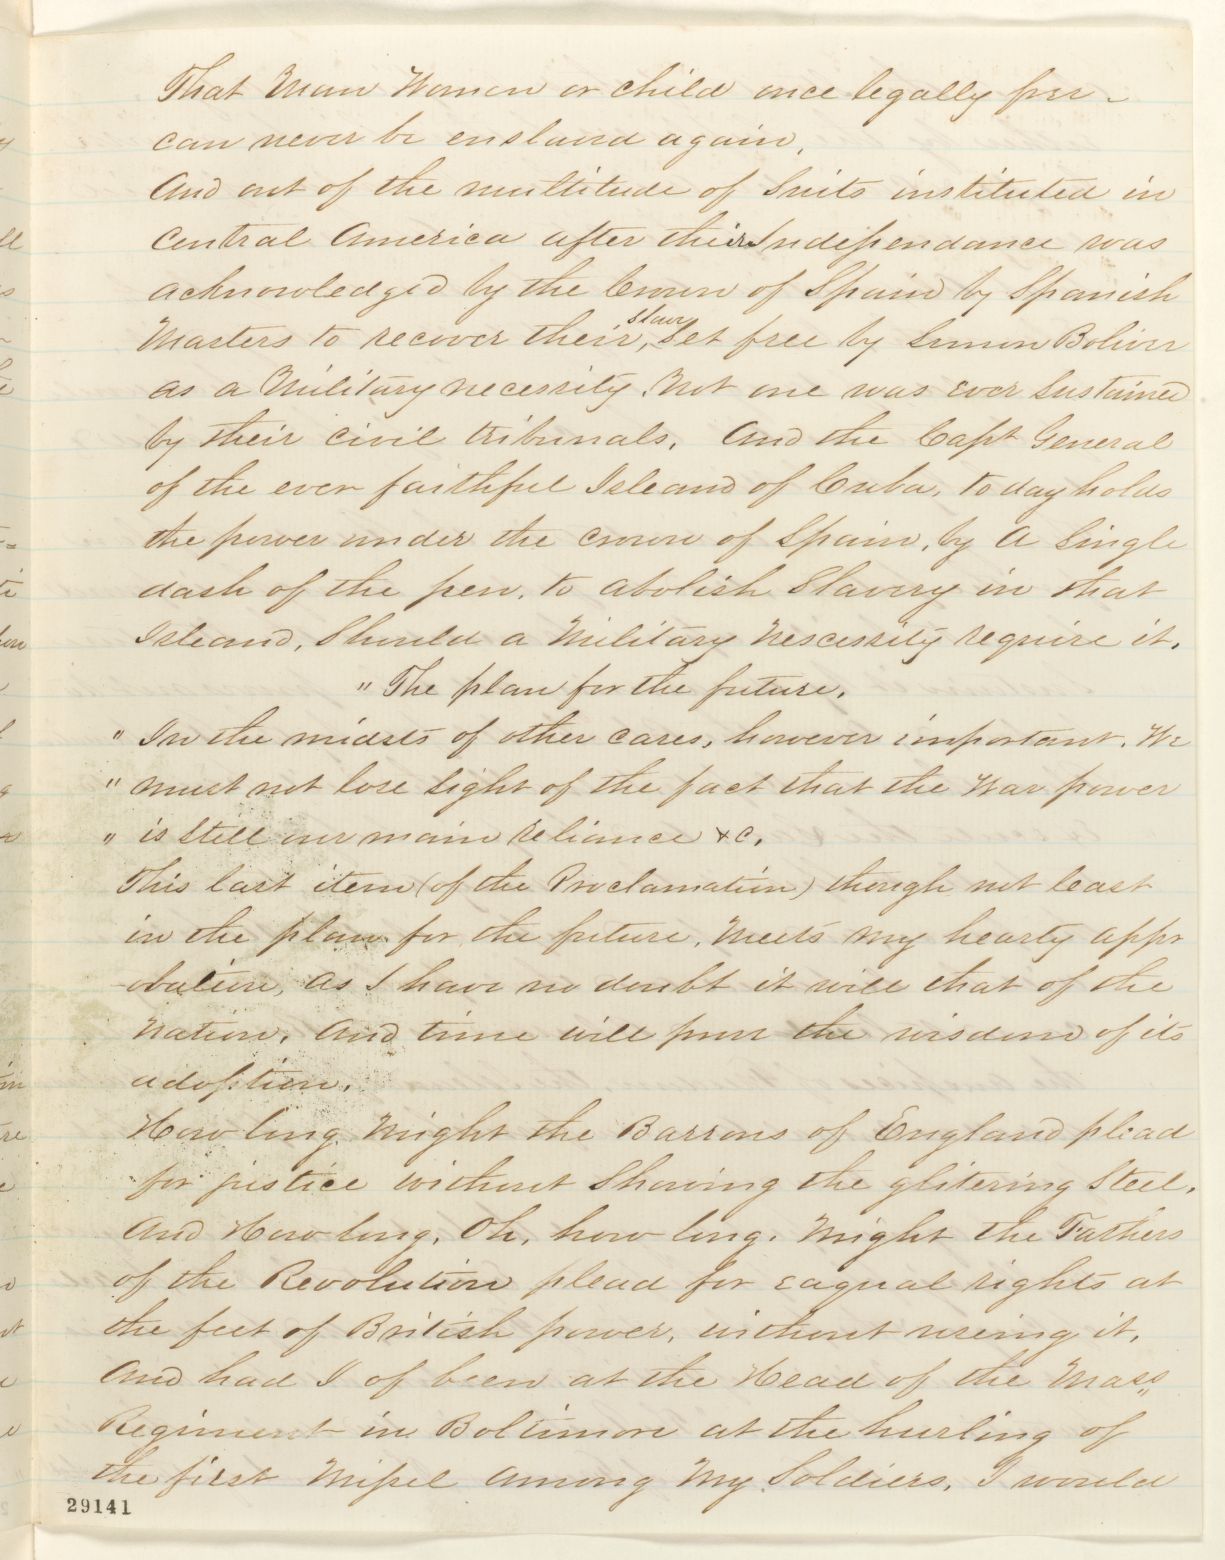 That Man Women or child once legally free
can never be enslaved again,
And out of the multitude of Suits instituted in
Central America after their Independance was
acknowledged by the Crown of Spain by Spanish
Masters to recover their, slaves Set free by Simon Boliver
as a Military necessity. Not one was ever Sustained
by their civil tribunals. And the Capt General
of the ever faithful Isleand of Cuba, to day holds
the power under the crown of Spain, by A Single
dash of the pen, to abolish Slavery in that
Isleand, Should a Military Nescessity require it.
" The plan for the future.
" In the midsts of other cares, however important, We
" must not lose sight of the fact that the War power
" is Still our main reliance &c.
This last item (of the Proclamation) though not least
in the plan for the future, Meets my hearty appr
obation, as I have no doubt it will that of the
Nation. And time will prove the wisdom of its
adoption.
How long Might the Barrons of England plead
for justice without Showing the glitering Steel.
And How long, Oh, how long. Might the Fathers
of the Revolution plead for eaqual rights at
the feet of British power, without useing it.
And had I of been at the Head of the Mass
Regiment in Boltimore at the hurling of
the first Missel among My Soldiers, I would
29141